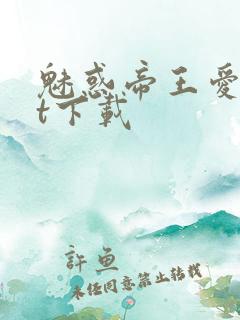 魅惑帝王愛
t下載
許魚
未經同意禁止轉載